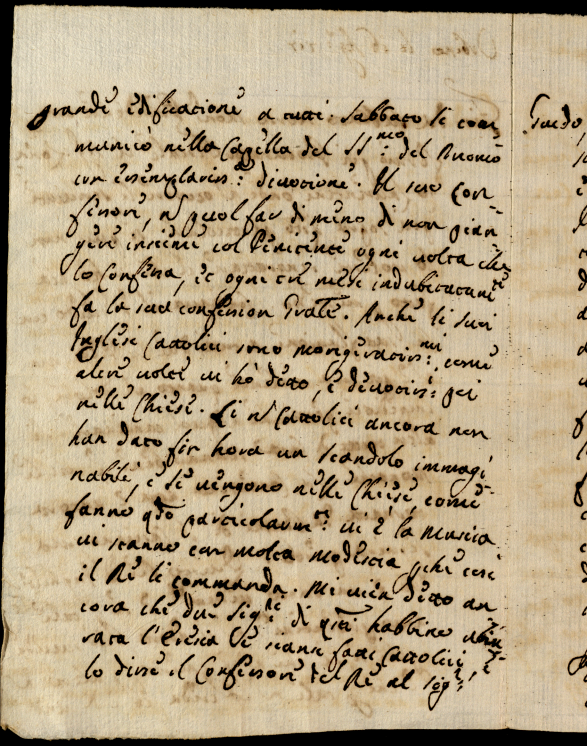 grande edificacione a tutti. Sabbato si com,
municò nella Capella del SS.mo del Duomo
con essemplariss.a divocione. Il suo con,
fessore, nō puol far di meno di non pian,
gere insieme col Penitente ogni volta che
lo Confessa, et ogni tre mesi indubitatamte
fa la sua confession Grāle. Anche li suoi
Inglesi Cattolici sono morigeratiss:mi, come
altre volte vi hò detto, e devotiss:i poi
nelle Chiese. Li nō Cattolici ancora non
han dato fin hora un scandolo immagi,
nabile, e se vengono nelle Chiese, come
fanno qdo particolarmte vi è la musica
vi stanno con molta modestia, pche così
il Rè li commanda. Mi vien detto an,
cora che due Sigri di qsti habbino abiu,
rata l'Eresia e si siano fatti Cattolici, e
lo disse il Confessore del Rè al sigr
Guido,